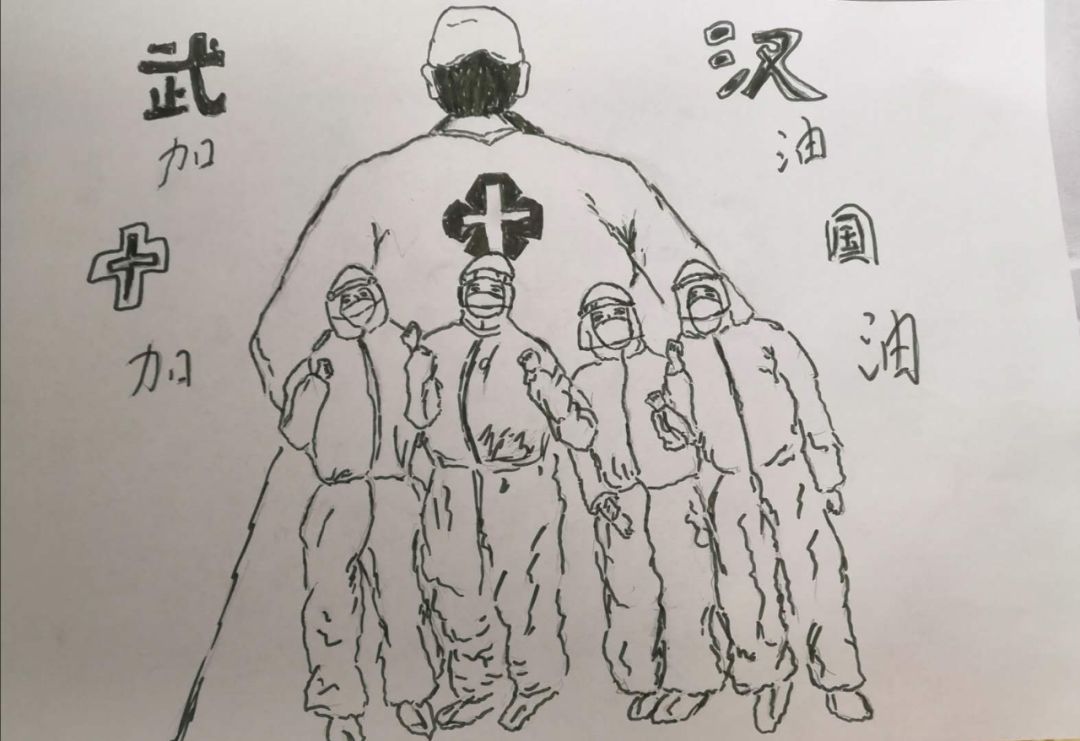 武汉
加油
中国
加油